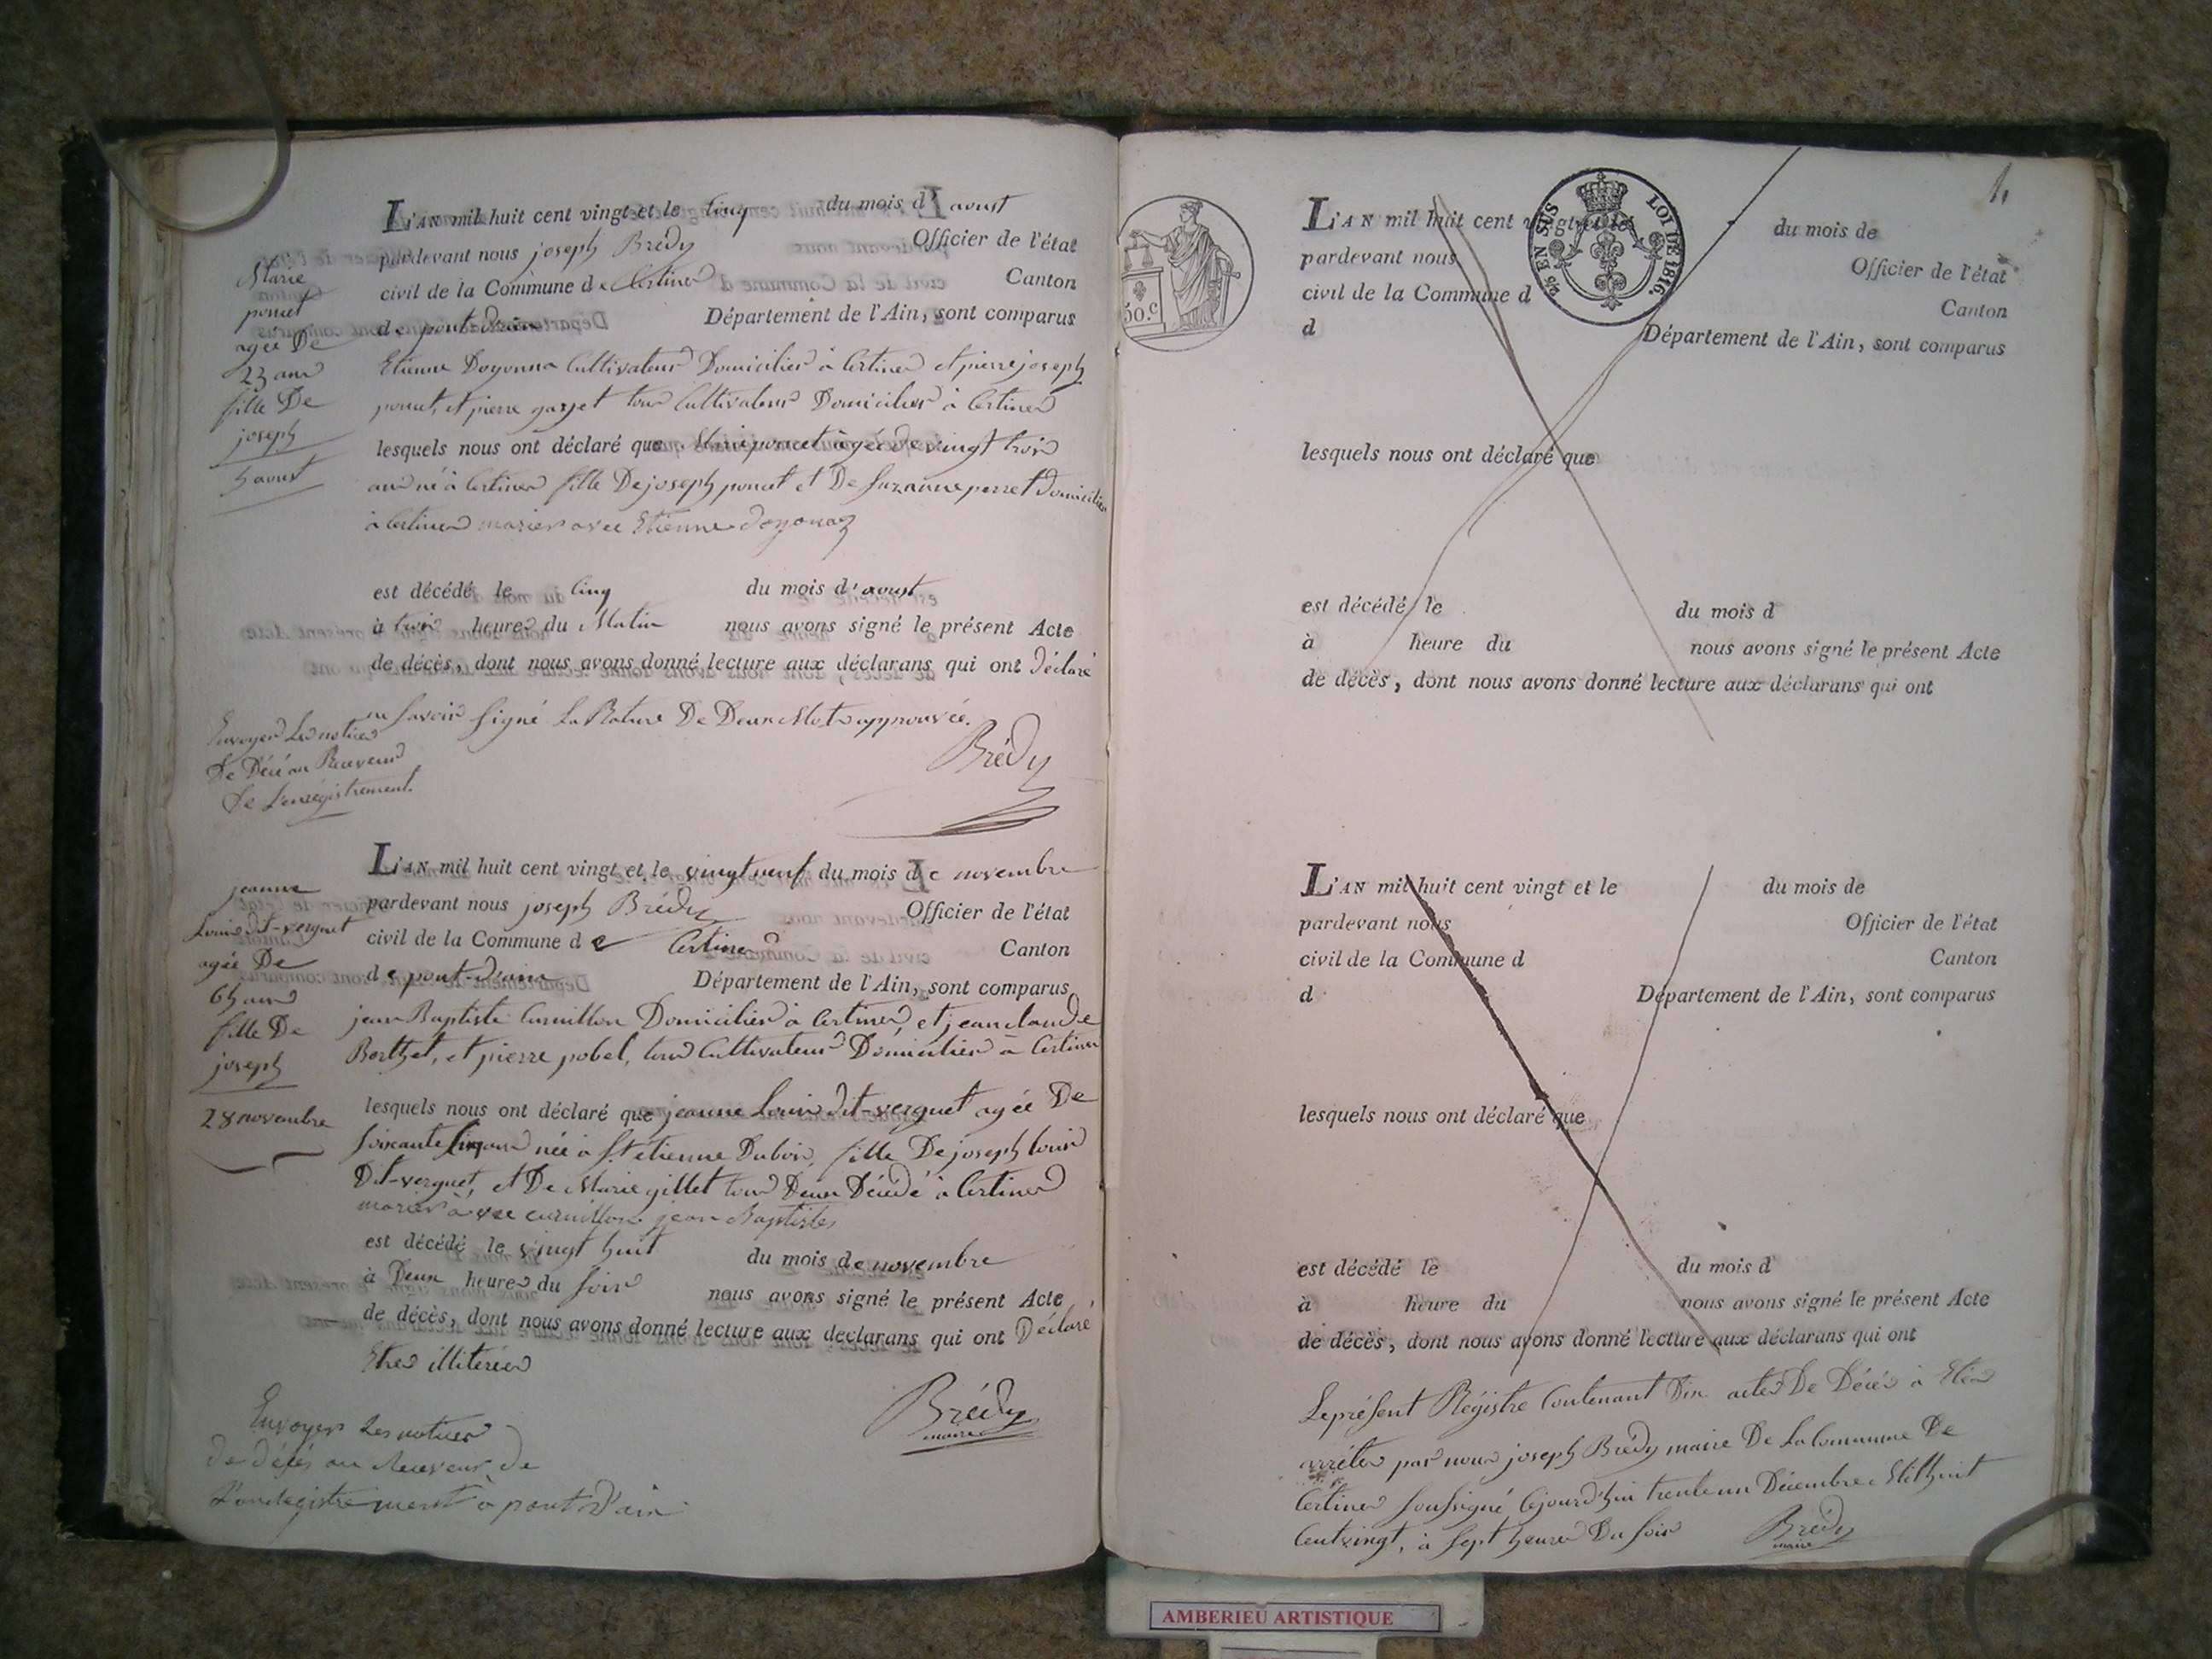 L'AN mil huit cent vingt et le cinq du mois d'aoust
pardevant nous joseph Brédy Officier de l'état
civil de la Commune de Certines Canton
de pont-d'ain Département de l'Ain, sont comparus
Etienne Doyonna Cultivateur Domicilier à Certines et pierre joseph
poncet, et pierre gayet tous Cultivateurs Domicilies à Certines
lesquels nous ont déclaré que Marie poncet agée de vingt trois
ans né à Certines fille De joseph poncet et De Suzanne perret Domicilies
à Certines maries avec Etienne doyonaz
est décédé le cinq du mois d'aoust
à trois heures du Matin nous avons signé le présent Acte
de décès, dont nous avons donné lecture aux déclarans qui ont Déclaré
ne savoir signé La Rature De Deux Mots approuvée.
Brédy
Marie
poncet
agée De
23 ans
fille De
joseph
5 aoust
Envoyer Les notices
De Décé au Receveur
De L'enregistrement.
L'AN mil huit cent vingt et le vingt neuf du mois de novembre
pardevant nous joseph Brédy Officier de l'état
civil de la Commune de Certines Canton
de pont-d'ain Département de l'Ain, sont comparus
jean Baptiste Curnillon Domicilier à Certines, et jean claude
Berthet, et pierre pobel, tous Cultivateurs Domicilier à Certines
lesquels nous ont déclaré que jeanne Louis dit-verguet agée De
soixante cinq ans née à St etienne Dubois, fille De joseph Louis
Dit-verguet, et De Marie gillet tous Deux Décédé à Certines
maries avec curnillon jean Baptiste
est décédé le vingt huit du mois de novembre
à Deux heures du soir nous avons signé le présent Acte
de décès, dont nous avons donné lecture aux déclarans qui ont Déclaré
Etres illiterés
Brédy
maire
jeanne
Louis dit-verguet
agée De
65 ans
fille De
joseph
28 novembre
Envoyer Les notices
de décés au Receveur de
L'enregistrement a pont d'ain
L'AN mil huit cent vingt et le du mois de
pardevant nous Officier de l'état
civil de la Commune d Canton
d Département de l'Ain, sont comparus
lesquels nous ont déclaré que
est décédé le du mois d
à heure du nous avons signé le présent Acte
de décès, dont nous avons donné lecture aux déclarans qui ont
25 EN SUS LOI DE 1816.
50.c
L'AN mil huit cent vingt et le du mois de
pardevant nous Officier de l'état
civil de la Commune d Canton
d Département de l'Ain, sont comparus
lesquels nous ont déclaré que
est décédé le du mois d
à heure du nous avons signé le présent Acte
de décès, dont nous avons donné lecture aux déclarans qui ont
Le présent Régistre Contenant Dix actes De Décés à Eté
arrêter par nous joseph Brédy maire De La Commune De
Certines Soussigné Cejourd'hui trente un Décembre Mil huit
Cent vingt, à Sept heures Du Soir Brédy
maire
AMBERIEU ARTISTIQUE